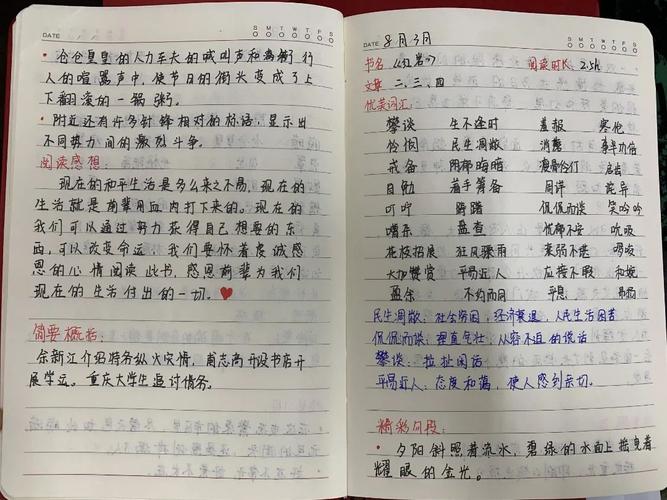 DATE
S M T W T F S
• 仓仓皇皇的人力车夫的喊叫声和满街行
人的喧嚣声中，使节日的街头变成了上
下翻滚的一锅粥。
• 附近还有许多针锋相对的标语，显示出
不同势力间的激烈斗争。
阅读感想：
现在的和平生活是多么来之不易，现在的
生活就是前辈用血肉打下来的。现在的
我们可以通过努力获得自己想要的东
西，可以改变命运，我们要怀着虔诚感
恩的心情阅读此书，感恩前辈为我们
现在的生活付出的一切。
简要概括：
余新江介绍特务纵火灾情，甫志高开设书店开
展学运。重庆大学生追讨债务。
DATE 8月3月
S M T W T F S
书名《红岩》 阅读时长：2.5h
文章 二、三、四
优美词汇：
攀谈 生不逢时 盖报 寒伧
伶悧 民生凋敝 消魔 事半功倍
戒备 阴郁晦暗 瘦骨伶仃
自勉 着手筹备 周详 诧异
叮咛 踌躇 侃侃而谈 笑吟吟
嗜杀 盘查 忧郁不安
花枝招展 狂风骤雨 柔弱不堪
大加赞赏 平易近人 应接不暇 和婉
盈余 不约而同 平息
民生凋敝：社会穷困，经济衰退，人民生活困苦
侃侃而谈：理直气壮，从容不迫的说话
攀谈：拉扯闲话
平易近人：态度和蔼，使人感到亲切。
精彩片段：
• 夕阳斜照着流水，碧绿的水面上摇晃着
耀眼的金光。